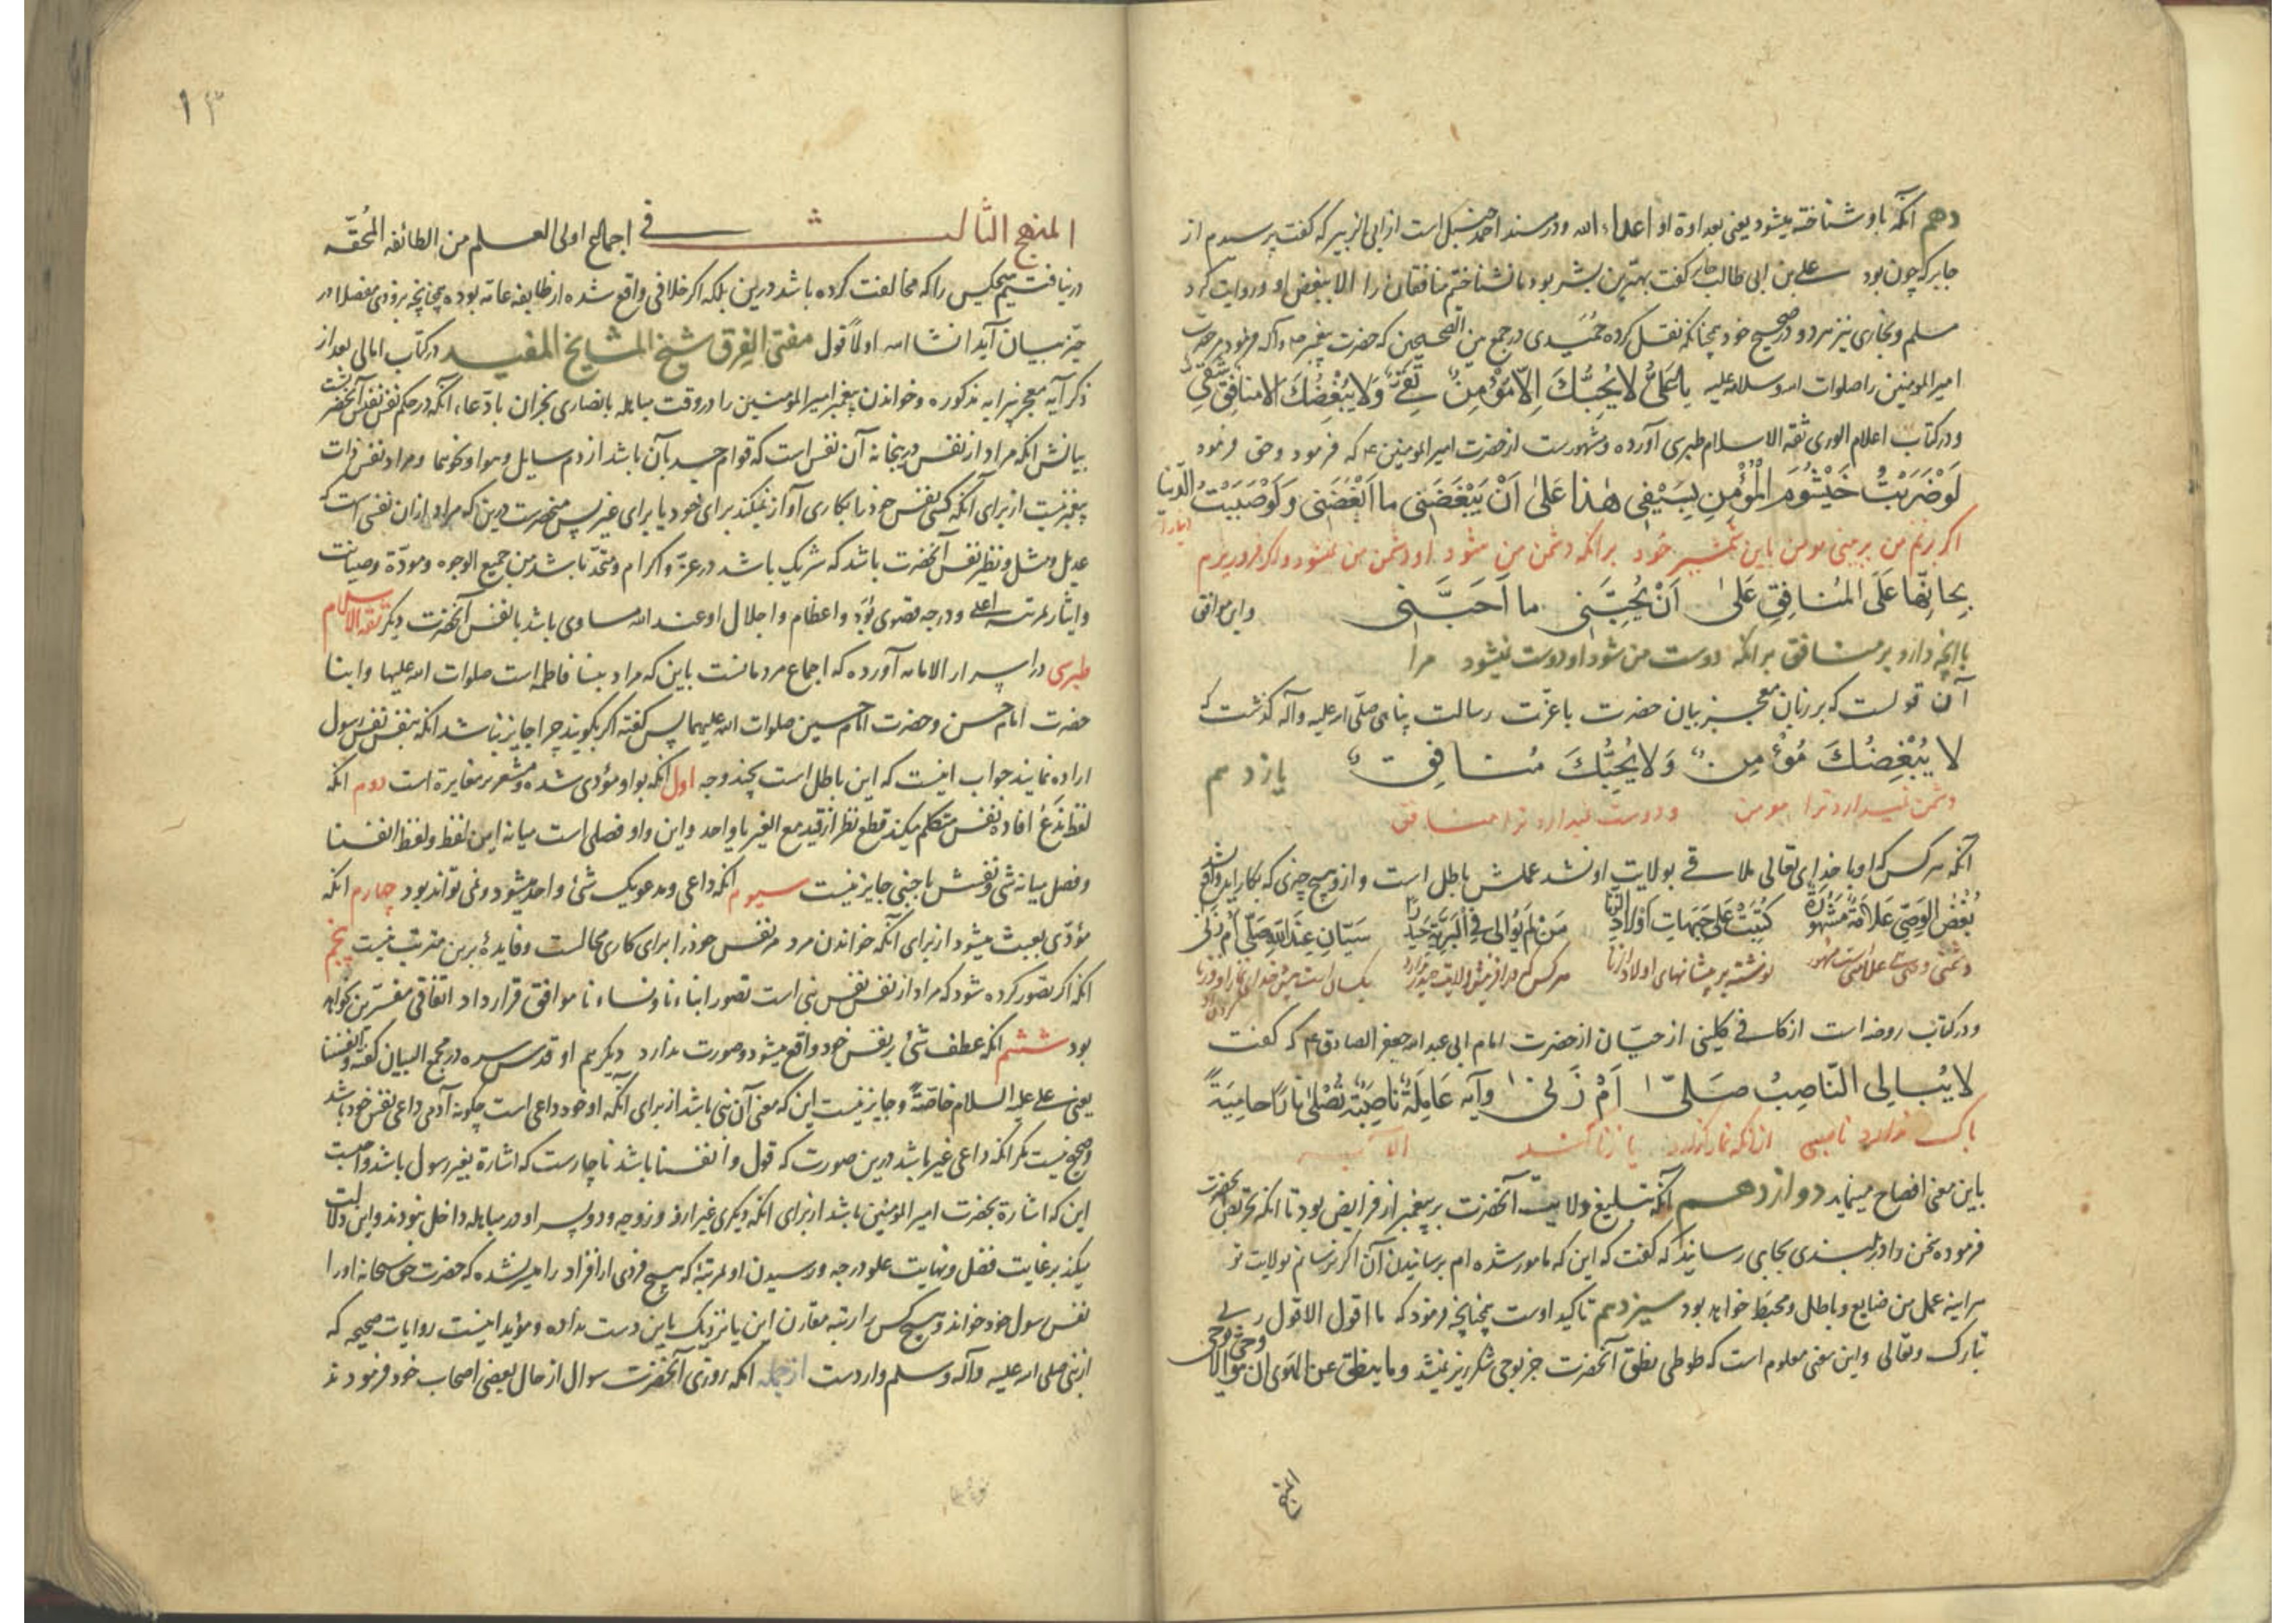 دهم آنکه باو شناخته میشود یعنی بعداوة او اعداء الله و در مسند احمد حنبل است از ابی الزبیر که گفت پرسیدم از
جابر که چون بود علی بن ابی طالب جابر کفت بهترین بشر بود ما نشناختیم منافقان را الا ببغض او و روایت کرد
مسلم و بخاری نیز هر دو در صحیح خود چنانکه نقل کرده حمیدی در جمع بین الصحیحین که حضرت پیغمبر ص وآله فرمود مر حضرت
امیر المومنین را صلوات الله وسلامه علیه یا عَلیُّ لا یُحِبُّکَ اِلاّ مُؤْمِنٌ تَقیٌّ وَلا یُبْغِضُکَ الا منافِقٌ شَقیٌّ
و در کتاب اعلام الوری ثقه الاسلام طبری آورده و مشهورست از حضرت امیر المومنین ع که فرمود وحق فرمود
لَوْ ضَرَبْتُ خَیْشُومَ الْمُؤْمِنِ بِسَیْفی هٰذا عَلیٰ اَنْ یَبْغَضَنی ما اَبْغَضَنی وَ لَوْ صَبَبْتُ الدّنیا
اگر بزنم من بر بینی مومن باین شمشیر خود بر انکه دشمن من شود او دشمن من نشود و اگر فرو ریزم
بِجاتِها عَلَی المُنافِقِ عَلیٰ اَنْ یُحِبَّنی ما اَحَبَّنی واین موافق
با انچه دارد بر منافق بر انکه دوست من شود او دوست نشود مرا
آن قولست که بر زبان معجز بیان حضرت با عزّت رسالت پناهی صلّی الله علیه وآله گذشت که
لا یُبْغِضُکَ مُؤْمِنٌ وَلا یُحِبُّکَ مُنافِقٌ یازدهم
دشمن نمیدارد ترا مومن و دوست نمیدارد ترا منافق
آنکه هر کس که او با خدای تعالی ملاقی بولایت او نشد عملش باطل است و از و هیچ چیزی که بکار اید واقع نشد
بُغْضُ الوَصِیِّ عَلامَةٌ مَشْهُورَةٌ کُتِبَتْ عَلی جَبَهاتِ اَوْلادِ الزِّنا مَنْ لَمْ یُوالی فِی الْبَرِیَّةِ حَیْدَراً سَیّانِ عِنْدَ اللهِ صَلّیٰ اَمْ زَنیٰ
دشمنی وصی علامتی است مشهور نوشته بر پیشانیهای اولاد زنا هر کس که در افرینش ولایت حیدر ندارد یکسان است پیش خدا نماز او و زنا
و در کتاب روضه است از کافی کلینی از حیّان از حضرت امام ابی عبد الله جعفر الصادق ع که کفت
لا یُبالِی النّاصِبُ صَلّیٰ اَمْ زَنیٰ وآیه عَامِلَةٌ ناصِبَةٌ تَصْلیٰ نارًا حامِیَةً
باک ندارد ناصبی از انکه نماز کزارد یا زنا کند الآیه
باین معنی افصاح مینماید دوازدهم آنکه تبلیغ ولایت آنحضرت بر پیغمبر از فرایض بود تا آنکه
فرموده سخن را در بلندی بجایی رسانید که کفت که این که مامور شده ام برسانیدن آن اکر نرسانم بولایت تو
هر اینه عمل من ضایع و باطل و محبط خواهد بود سیزدهم تاکید اوست چنانچه فرمود که ما اقول الا قول ربی
تبارک وتعالی واین معنی معلوم است که طوطی نطق آنحضرت جز بوحی شکر ریز نمیشد وما ینطق عن الهوی ان هو الا وحی یوحی
المنهج
۱۳
المنهج الثالث فی اجماع اولی العلم من الطائفه المُحقّه
در نیافتیم هیچکس را که مخالفت کرده باشد درین بلکه اکر خلافی واقع شده از طایفه عامه بوده چنانچه بزودی مفصلا در
حیّز بیان آید انشا الله اولاً قول مفتی الفِرق شیخ المشایخ المفید در کتاب امالی بعد از
ذکر آیه مذکوره و خواندن پیغمبر امیر المومنین را در وقت مباهله با نصاری نجران بادّعاء آنکه در حکم نفس نفیس آنحضرتست
بیانش انکه مراد از نفس درینجا نه آن نفس است که قوام جسد بآن باشد از دم سایل و هوا و نحوهما و مراد نفس ذات
پیغمبر نیست از برای آنکه کسی نفس خود را بکاری آواز نمیکند برای خود یا برای غیر پس منحصرست درین که مراد ازان نفسی است که
عدیل و مثل و نظیر نفس آنحضرت باشد که شریک باشد در عزّ واکرام و متحدّ باشد من جمیع الوجوه و مودّة وصیانت
وایثار بمرتبه اعلی ودرجه قصوی بُوَد واعظام واجلال او عند الله مساوی باشد با نفس آنحضرت دیکر ثقه الاسلام
طبری در اسرار الامامه آورده که اجماع مردمانست باین که مراد بنسا فاطمه است صلوات الله علیها وابنا
حضرت امام حسن وحضرت امام حسین صلوات الله علیهما پس گفته اکر بگویند چرا جایز نباشد انکه بنفس نفس رسول
اراده نمایند جواب اینست که این باطل است بچند وجه اول انکه بواو مؤدی شده و مشعر بر مغایرة است دوم انکه
لفظ نَدْعُ افاده نفس متکلم میکند قطع نظر از قید مع الغیر یا واحد واین واو فصلی است میانه این لفظ ولفظ انفسنا
وفصل میانه شی ونفسش باجنبی جایز نیست سیوم انکه داعی ومدعو یک شئ واحد میشود ونمی تواند بود چهارم انکه
مؤدّی بعبث میشود از برای آنکه خواندن مرد مر نفس خود را برای کاری محالست وفایدهٔ برین مترتب نیست پنجم
انکه اکر تصور کرده شود که مراد از نفس نفس نبی است تصور ابناءنا ونساءنا موافق قرارداد اتفاقی مفسّرین نخواهد
بود ششم انکه عطف شئ بر نفس خود واقع میشود وصورت ندارد دیکر هم او قدس سره در مجمع البیان کفته وانفسنا
یعنی علی علیه السلام خاصّةً وجایز نیست این که معنی آن نبی باشد از برای آنکه او خود داعی است چگونه آدمی داعی نفس خود باشد
وصحیح نیست مکر انکه داعی غیر باشد درین صورت که قول وانفسنا باشد ناچارست که اشارة بغیر رسول باشد
این که اشارة بحضرت امیر المؤمنین باشد از برای انکه دیکری غیر ازو و زوجه ودو پسر او در مباهله داخل نبودند واین دلالت
میکند بر غایت فضل ونهایت علو درجه و رسیدن او بمرتبهٔ که هیچ فردی از افراد را میسر نشده که حضرت حق سبحانه او را
نفس رسول خود خواند و هیچ کس را رتبه مقارن این یا نزدیک باین دست نداده ومؤید اینست روایات صحیحه که
از نبی صلی الله علیه وآله وسلم واردست از جمله انکه روزی آنحضرت سوال از حال بعضی اصحاب خود فرمودند